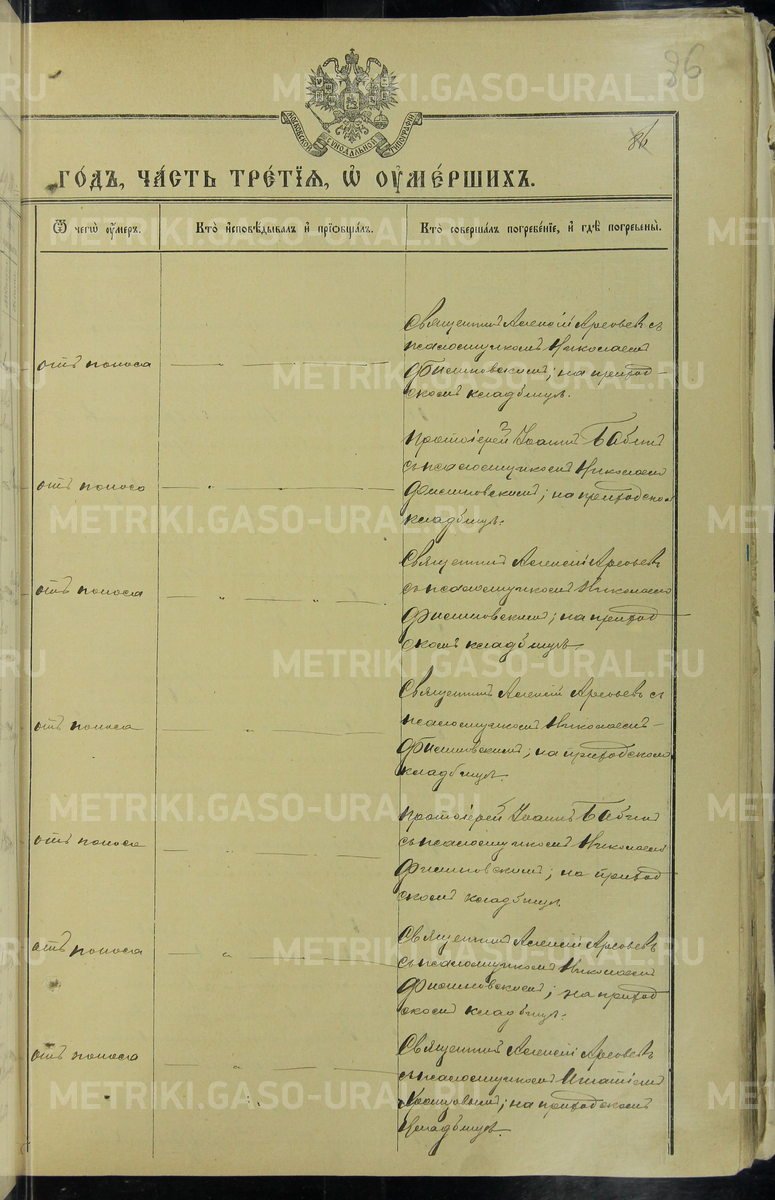 86
МОСКОВСКОЙ СѴНОДАЛЬНОЙ ТИПОГРАФІИ
86
ГО́ДЪ, ЧА́СТЬ ТРЕ́ТІЯ, Ѡ҆ ОУ҆МЕ́РШИХЪ.
Ѿ чегѡ̀ оу҆́меръ.
Кто̀ и҆сповѣ́дывалъ и҆ прїѡбща́лъ.
Кто̀ соверша́лъ погребе́нїе, и҆ гдѣ̀ погребены̀.
отъ поноса
Священникъ Алексій Арефьевъ съ
псаломщикомъ Николаемъ
Филиновскимъ; на приход-
скомъ кладбищѣ.
отъ поноса
протоіерей Іоаннъ Бабинъ
съ псаломщикомъ Николаемъ
Филиновскимъ; на приходскомъ
кладбищѣ.
отъ поноса
Священникъ Алексій Арефьевъ
съ псаломщикомъ Николаемъ
Филиновскимъ; на приход
скомъ кладбищѣ
отъ поноса
Священникъ Алексій Арефьевъ съ
псаломщикомъ Николаемъ
Филиновскимъ; на приходскомъ
кладбищѣ.
отъ поноса
протоіерей Іоаннъ Бабинъ
съ псаломщикомъ Николаемъ
Филиновскимъ; на приход
скомъ кладбищѣ
отъ поноса
Священникъ Алексій Арефьевъ
съ псаломщикомъ Николаемъ
Филиновскимъ; на приход
скомъ кладбищѣ.
отъ поноса
Священникъ Алексій Арефьевъ
съ псаломщикомъ Игнатіемъ
на приходскомъ
кладбищѣ.
METRIKI.GASO-URAL.RU